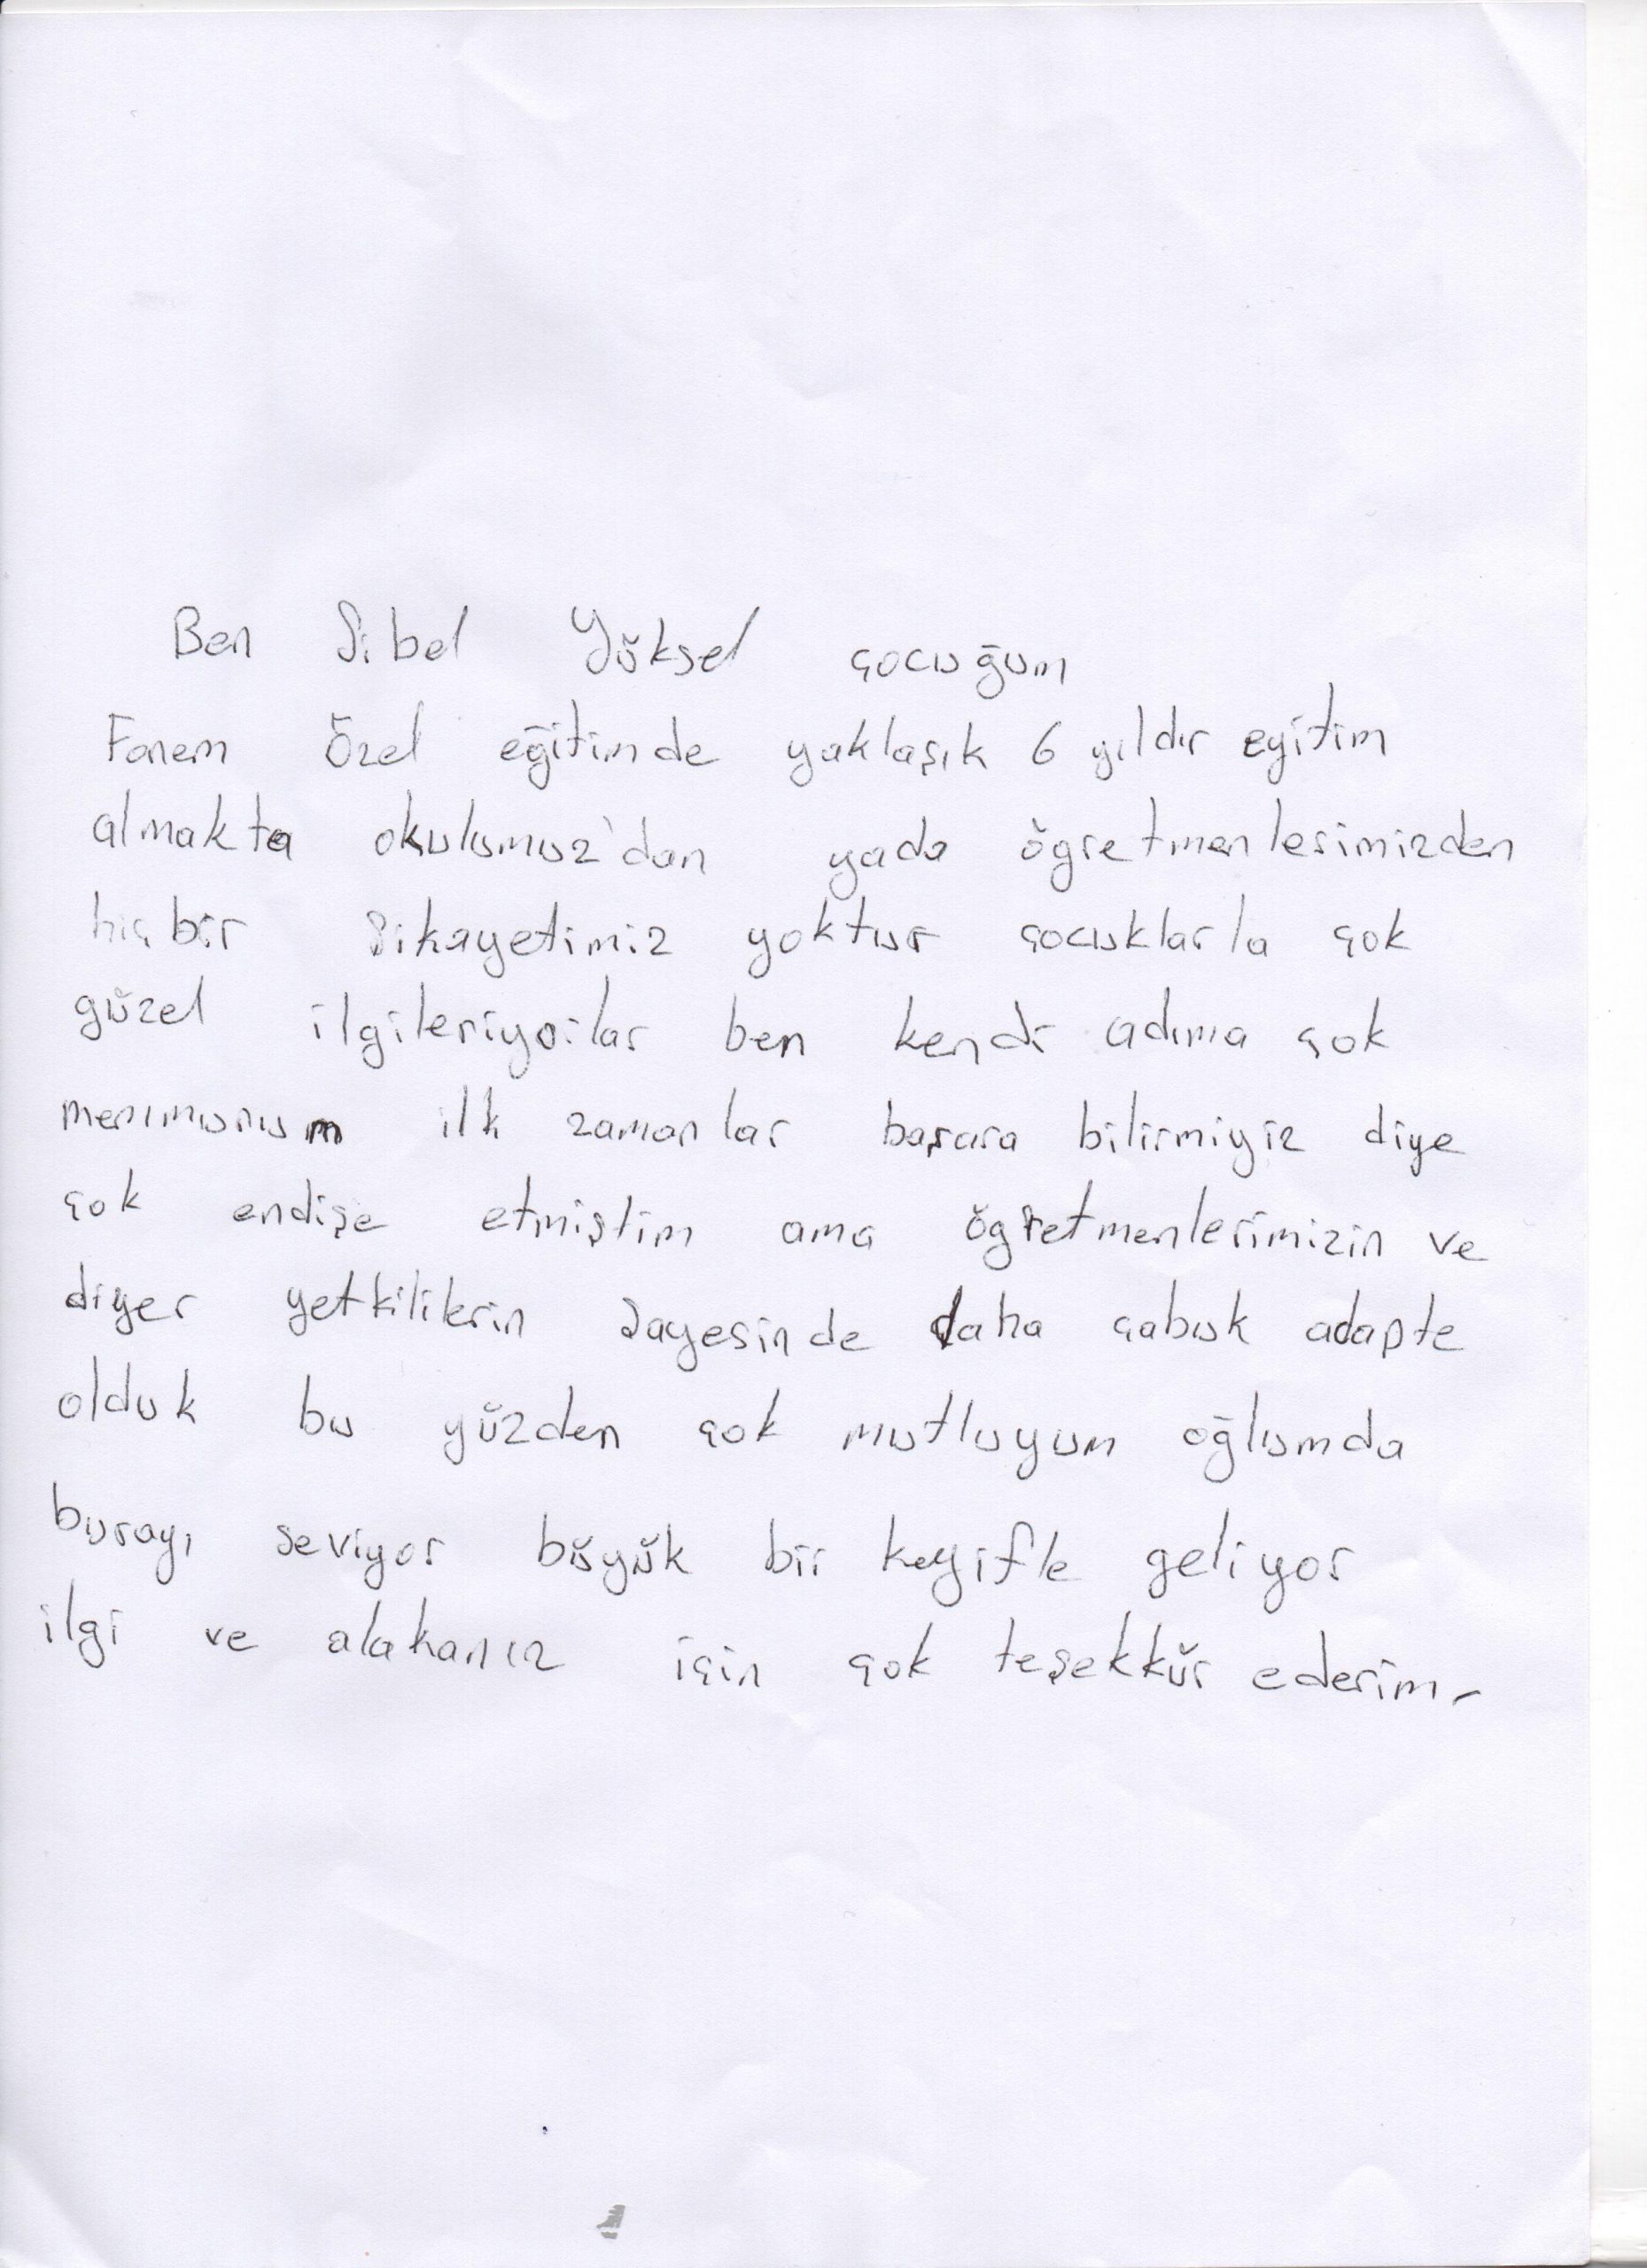 Ben Sibel Yüksel çocuğum
Fanem Özel eğitimde yaklaşık 6 yıldır eyitim
almakta okulumuz'dan yada ögretmenlerimizden
hiçbir Şikayetimiz yoktur çocuklarla çok
güzel ilgileniyorlar ben kendi adıma çok
memmunum ilk zamanlar başara bilirmiyiz diye
çok endişe etmiştim ama ögretmenlerimizin ve
diyer yetkililerin sayesinde daha çabuk adapte
olduk bu yüzden çok mutluyum oğlumda
burayı seviyor büyük bir keyifle geliyor
ilgi ve alakanız için çok teşekkür ederim.